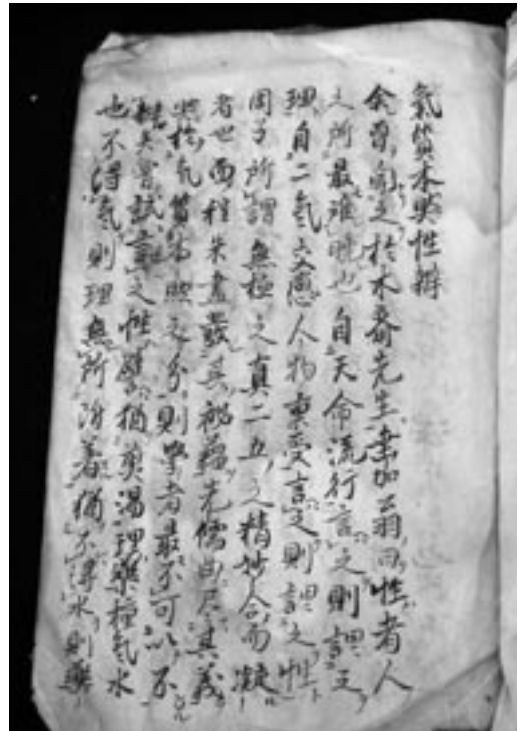 氣質本然性辨
余嘗聞之於木齋先生幸加翁曰性者人
之所最难暁也自天命流行言之則謂之
理自二氣交感人物稟受言之則謂之性
周子所謂無極之真二五之精妙合而凝
者也而程朱盡發其秘蘊先儒曲尽其義
然於氣質本然之分則學者最不可以不
嘗試言之性譬猶煎湯理藥種氣水
也不得氣則理無所附着猶不得水則藥